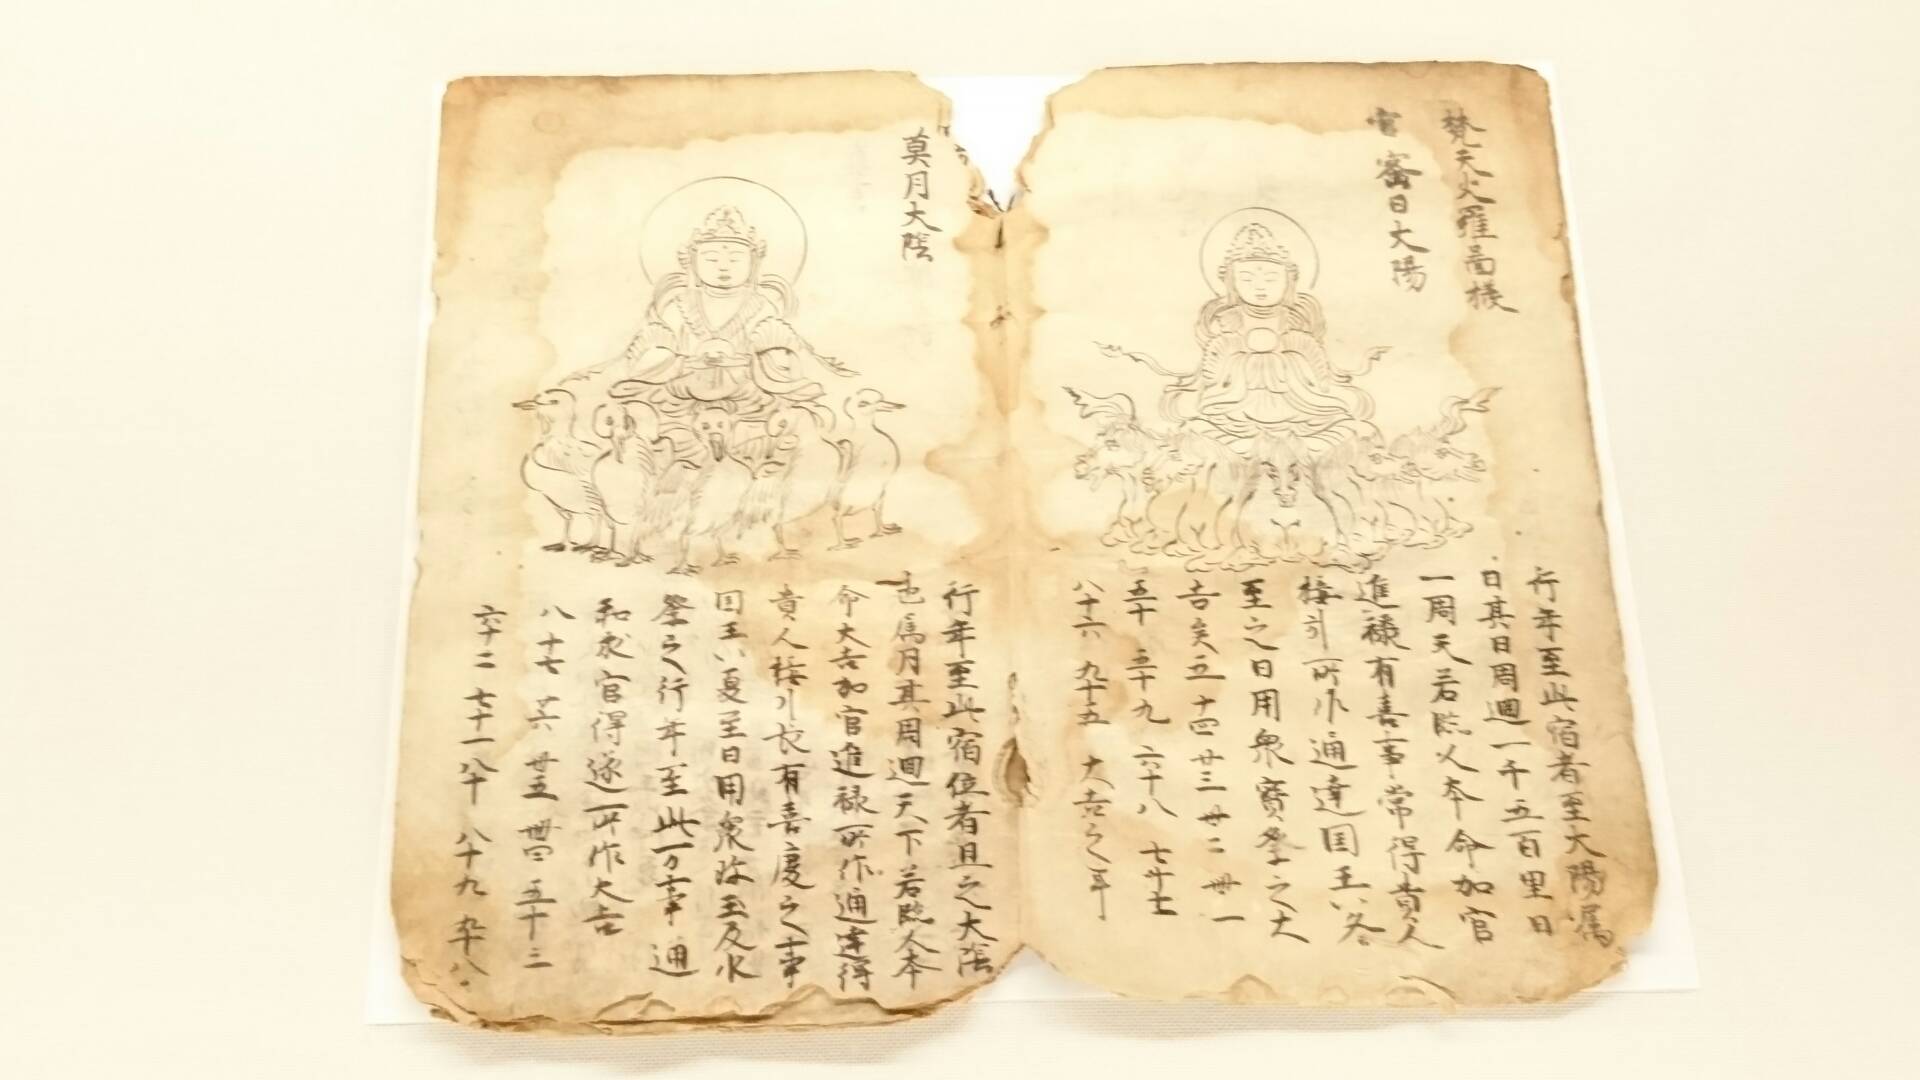 梵天火羅啚樣
宮 密日大陽
行年至此宿者至大陽属
日其日周迴一千五百里日
一周天若臨人本命加官
進禄有喜事常得貴人
接引所作通達国王冬
至之日用衆寳祭之大
吉矣五 十四 廿三 卅二 卌一
五十 五十九 六十八 七十七
八十六 九十五 大吉之年
莫月大陰
行年至此宿位者且之大陰
也属月其周迴天下若臨人本
命大吉加官進禄所作通達得
貴人接引長有喜慶之事
国王夏至日用衆珎玉及水
祭之行年至此一万事通
和求官得遂所作大吉
八 十七 廿六 卅五 卌四 五十三
六十二 七十一 八十 八十九 九十八